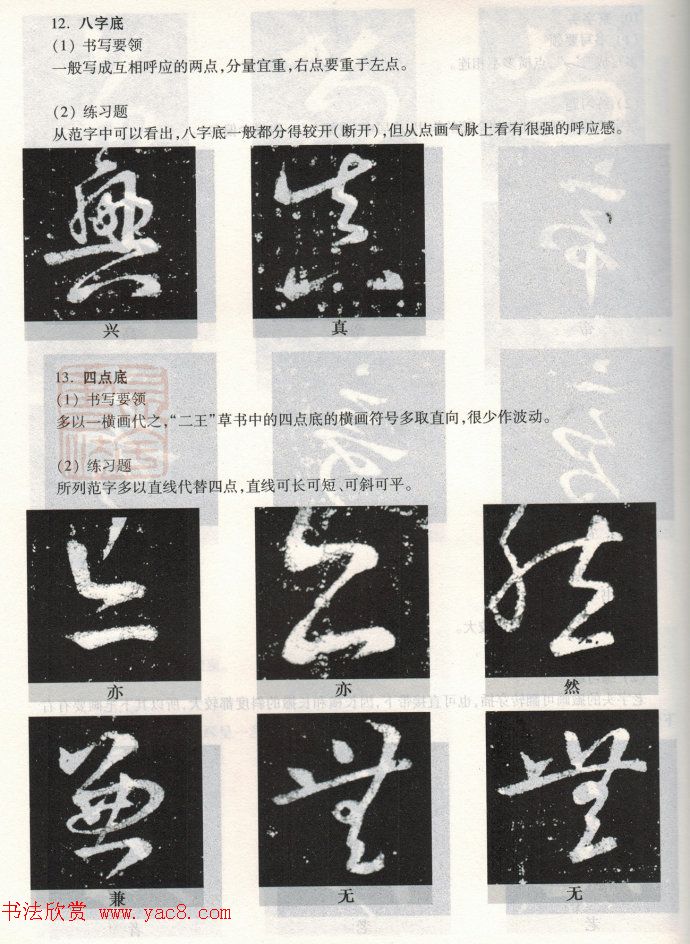 12. 八字底
(1) 书写要领
一般写成互相呼应的两点,分量宜重,右点要重于左点。
(2) 练习题
从范字中可以看出,八字底一般都分得较开(断开),但从点画气脉上看有很强的呼应感。
兴 真
13. 四点底
(1) 书写要领
多以一横画代之,“二王”草书中的四点底的横画符号多取直向,很少作波动。
(2) 练习题
所列范字多以直线代替四点,直线可长可短、可斜可平。
亦 亦 然
兼 无 无
书法欣赏 www.yac8.com